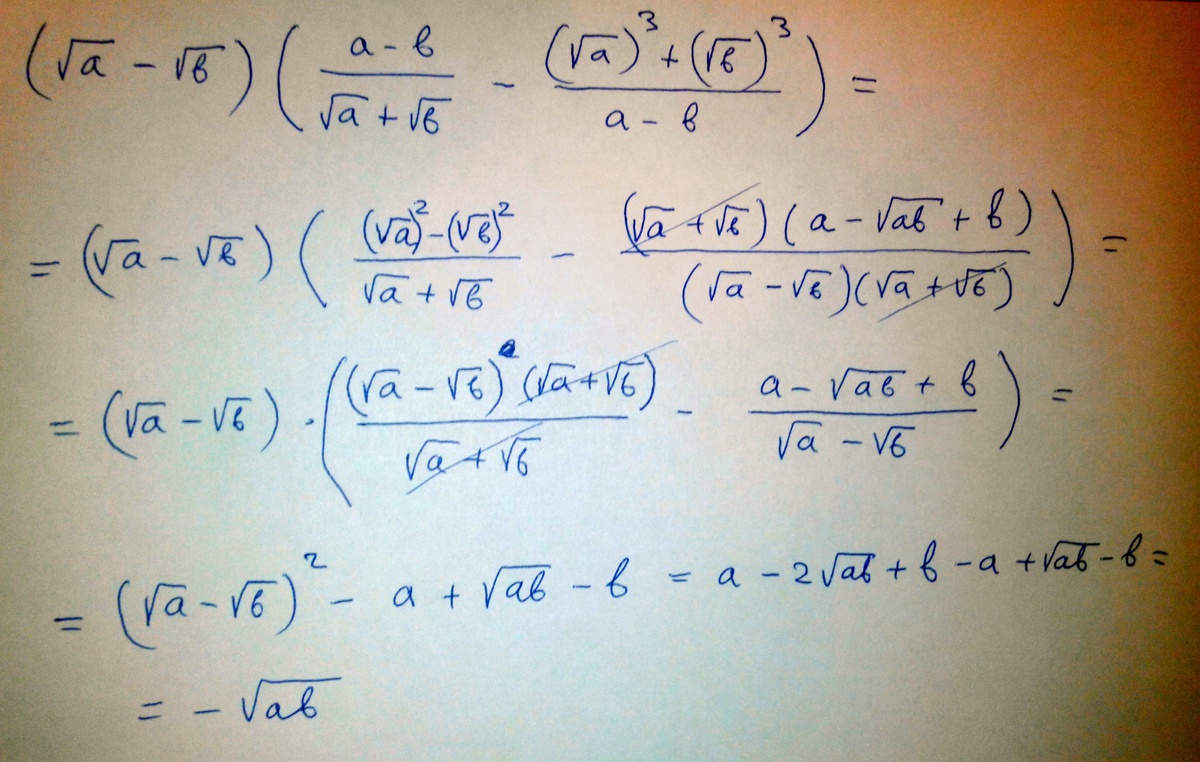 (√a - √b) ( (a - b)/(√a + √b) - ((√a)³ + (√b)³)/(a - b) ) =
= (√a - √b) ( ((√a)² - (√b)²)/(√a + √b) - ((√a + √b)(a - √ab + b))/((√a - √b)(√a + √b)) ) =
= (√a - √b) · ( ((√a - √b)(√a + √b))/(√a + √b) - (a - √ab + b)/(√a - √b) ) =
= (√a - √b)² - a + √ab - b = a - 2√ab + b - a + √ab - b =
= - √ab